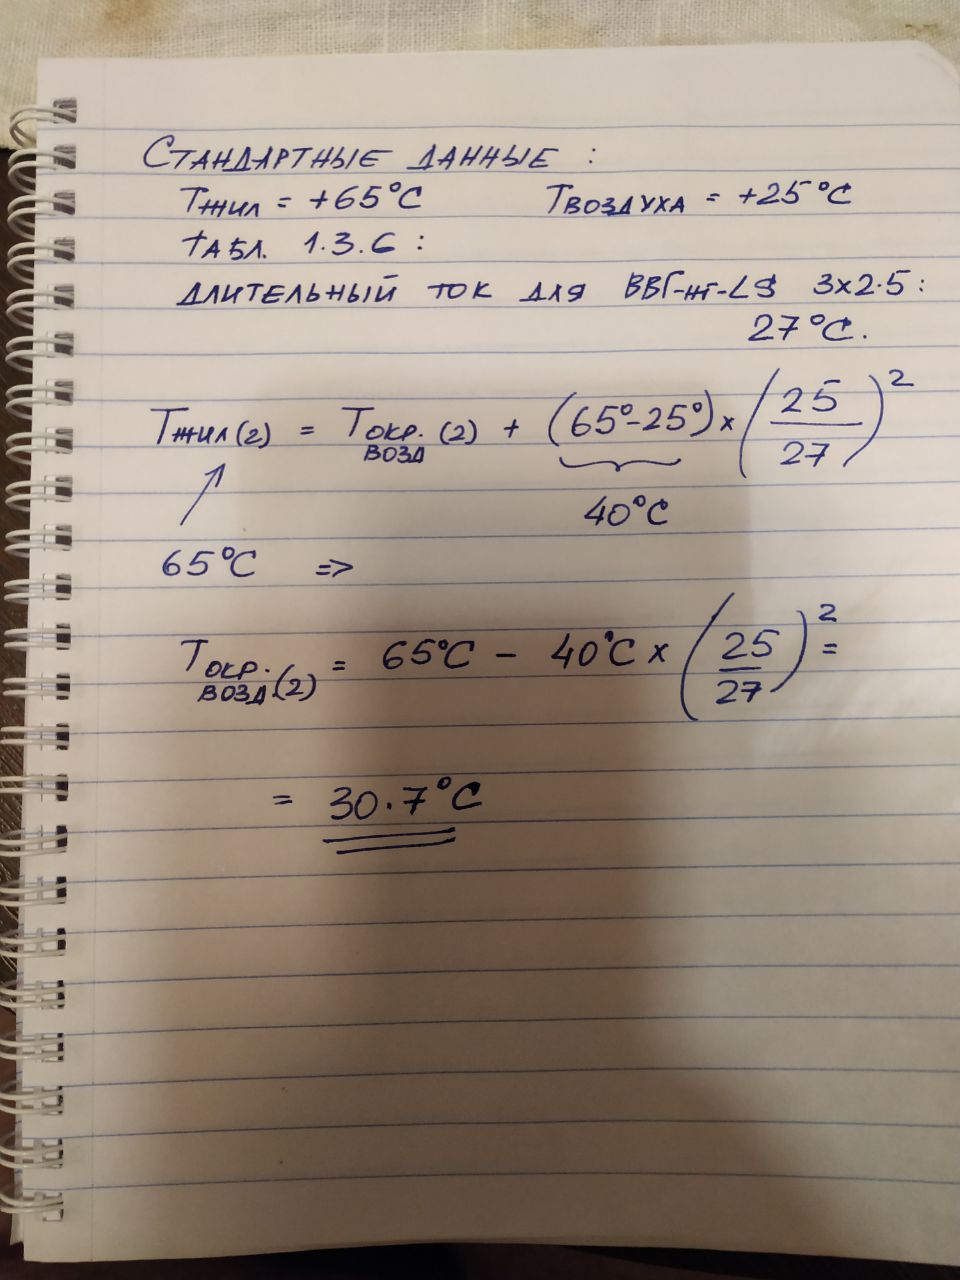 Стандартные данные :
Tжил = +65°C Tвоздуха = +25°C
табл. 1.3.6 :
длительный ток для ВВГ-нг-LS 3x2.5 :
27°C.
Tжил(2) = Tокр. возд (2) + (65°-25°) x (25/27)²
40°C
65°C =>
Tокр. возд.(2) = 65°C - 40°C x (25/27)² =
= 30.7°C